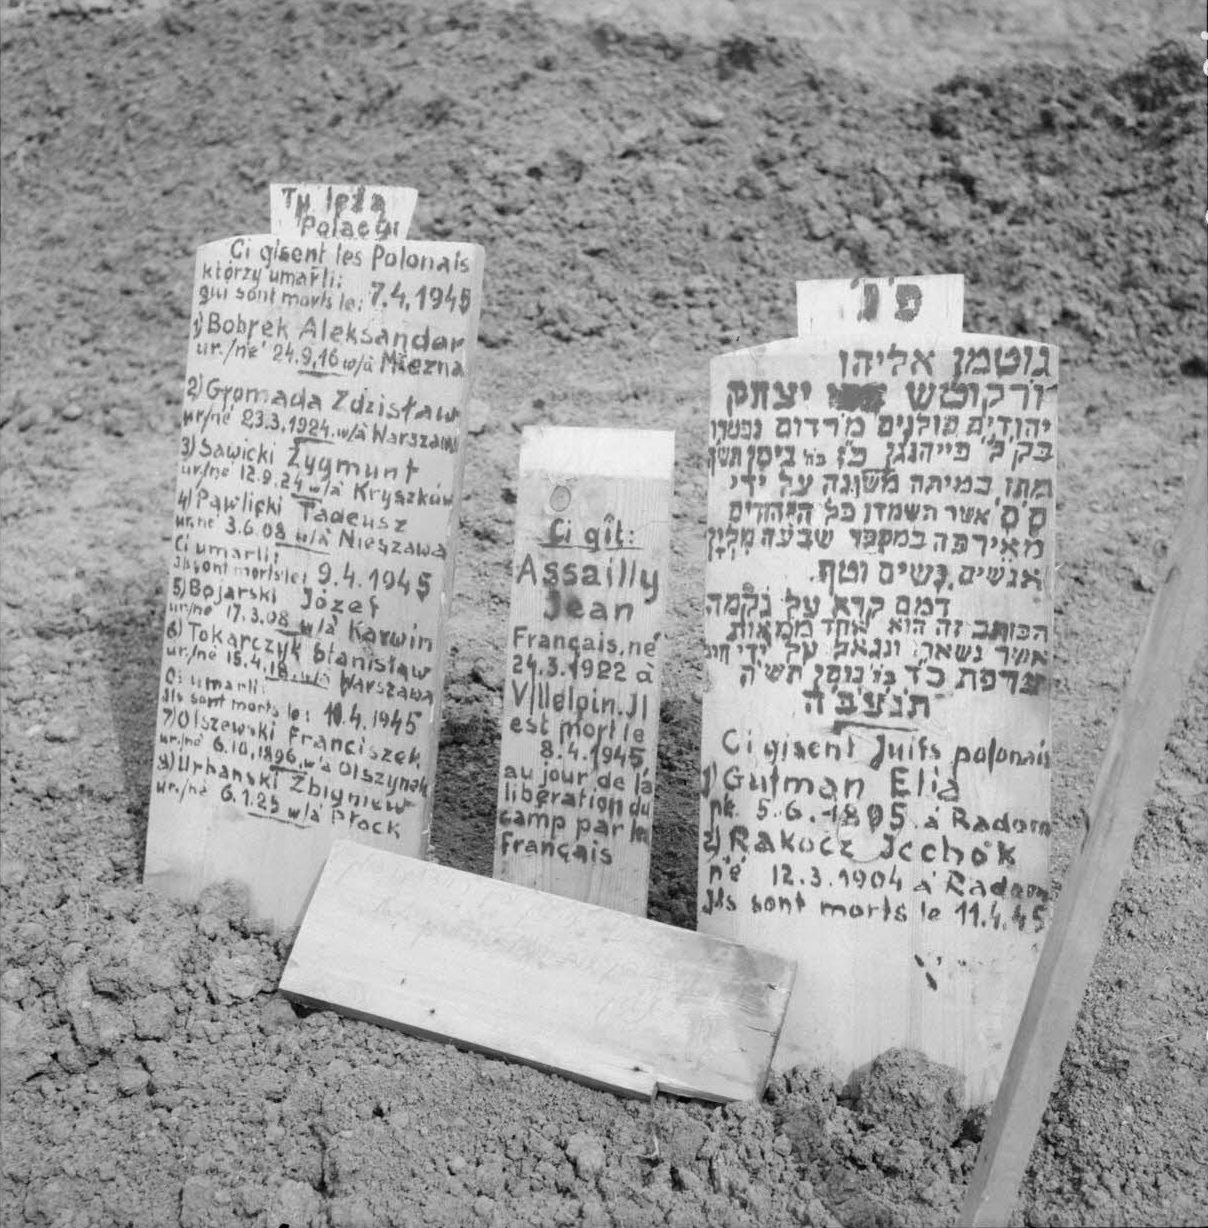 Tu leżą
Polacy
Ci gisent les Polonais
którzy umarli:
qui sont morts le: 7.4.1945
1) Bobrek Aleksander
ur./né 24.9.16 w/à Miezna
2) Gromada Zdzisław
ur/né 23.3.1924. w/à Warszawa
3) Sawicki Zygmunt
ur./né 12.9.24 w/à Kryszków
4) Pawlicki Tadeusz
ur.né 3.6.08 w/à Nieszawa
Ci umarli:
Ils sont morts le: 9.4.1945
5) Bojarski Józef
ur/né 17.3.08 w/à Karwin
6) Tokarczyk Stanisław
ur./né 15.4.18 w/à Warszawa
Ci umarli:
Ils sont morts le: 10.4.1945
7) Olszewski Franciszek
ur./né 6.10.1896. w/à Olszynek
8) Urbański Zbigniew
ur./né 6.1.25 w/à Płock
Ci gît:
Assailly
Jean
Français, né
24.3.1922 à
Villeloin. Il
est mort le
8.4.1945
au jour de la
libération du
camp par les
Français
פ'נ'
גוטמן אליהו
ורקוטש יצחק
יהודים פולנים מ'רדום נפטרו
בק'ל' פייהנגן כ"ז ניסן תש"ה
מתו במיתה משונה על ידי
ס'ס' אשר השמדו כל היהודים
מאירפה במספר שבעה מליון
אנשים, נשים וטף.
דמם קרא על נקמה
הכותב זה הוא אחד ממאות
אשר נשאר ונגאל על ידי
צרפת כ"ד ניסן תש"ה
ת'נ'צ'ב'ה
Ci gisent Juifs polonais
1) Gutman Elia
né 5.6.1895 à Radom
2) Rakocz Icchok
né 12.3.1904 à Radom
Ils sont morts le 11.4.45